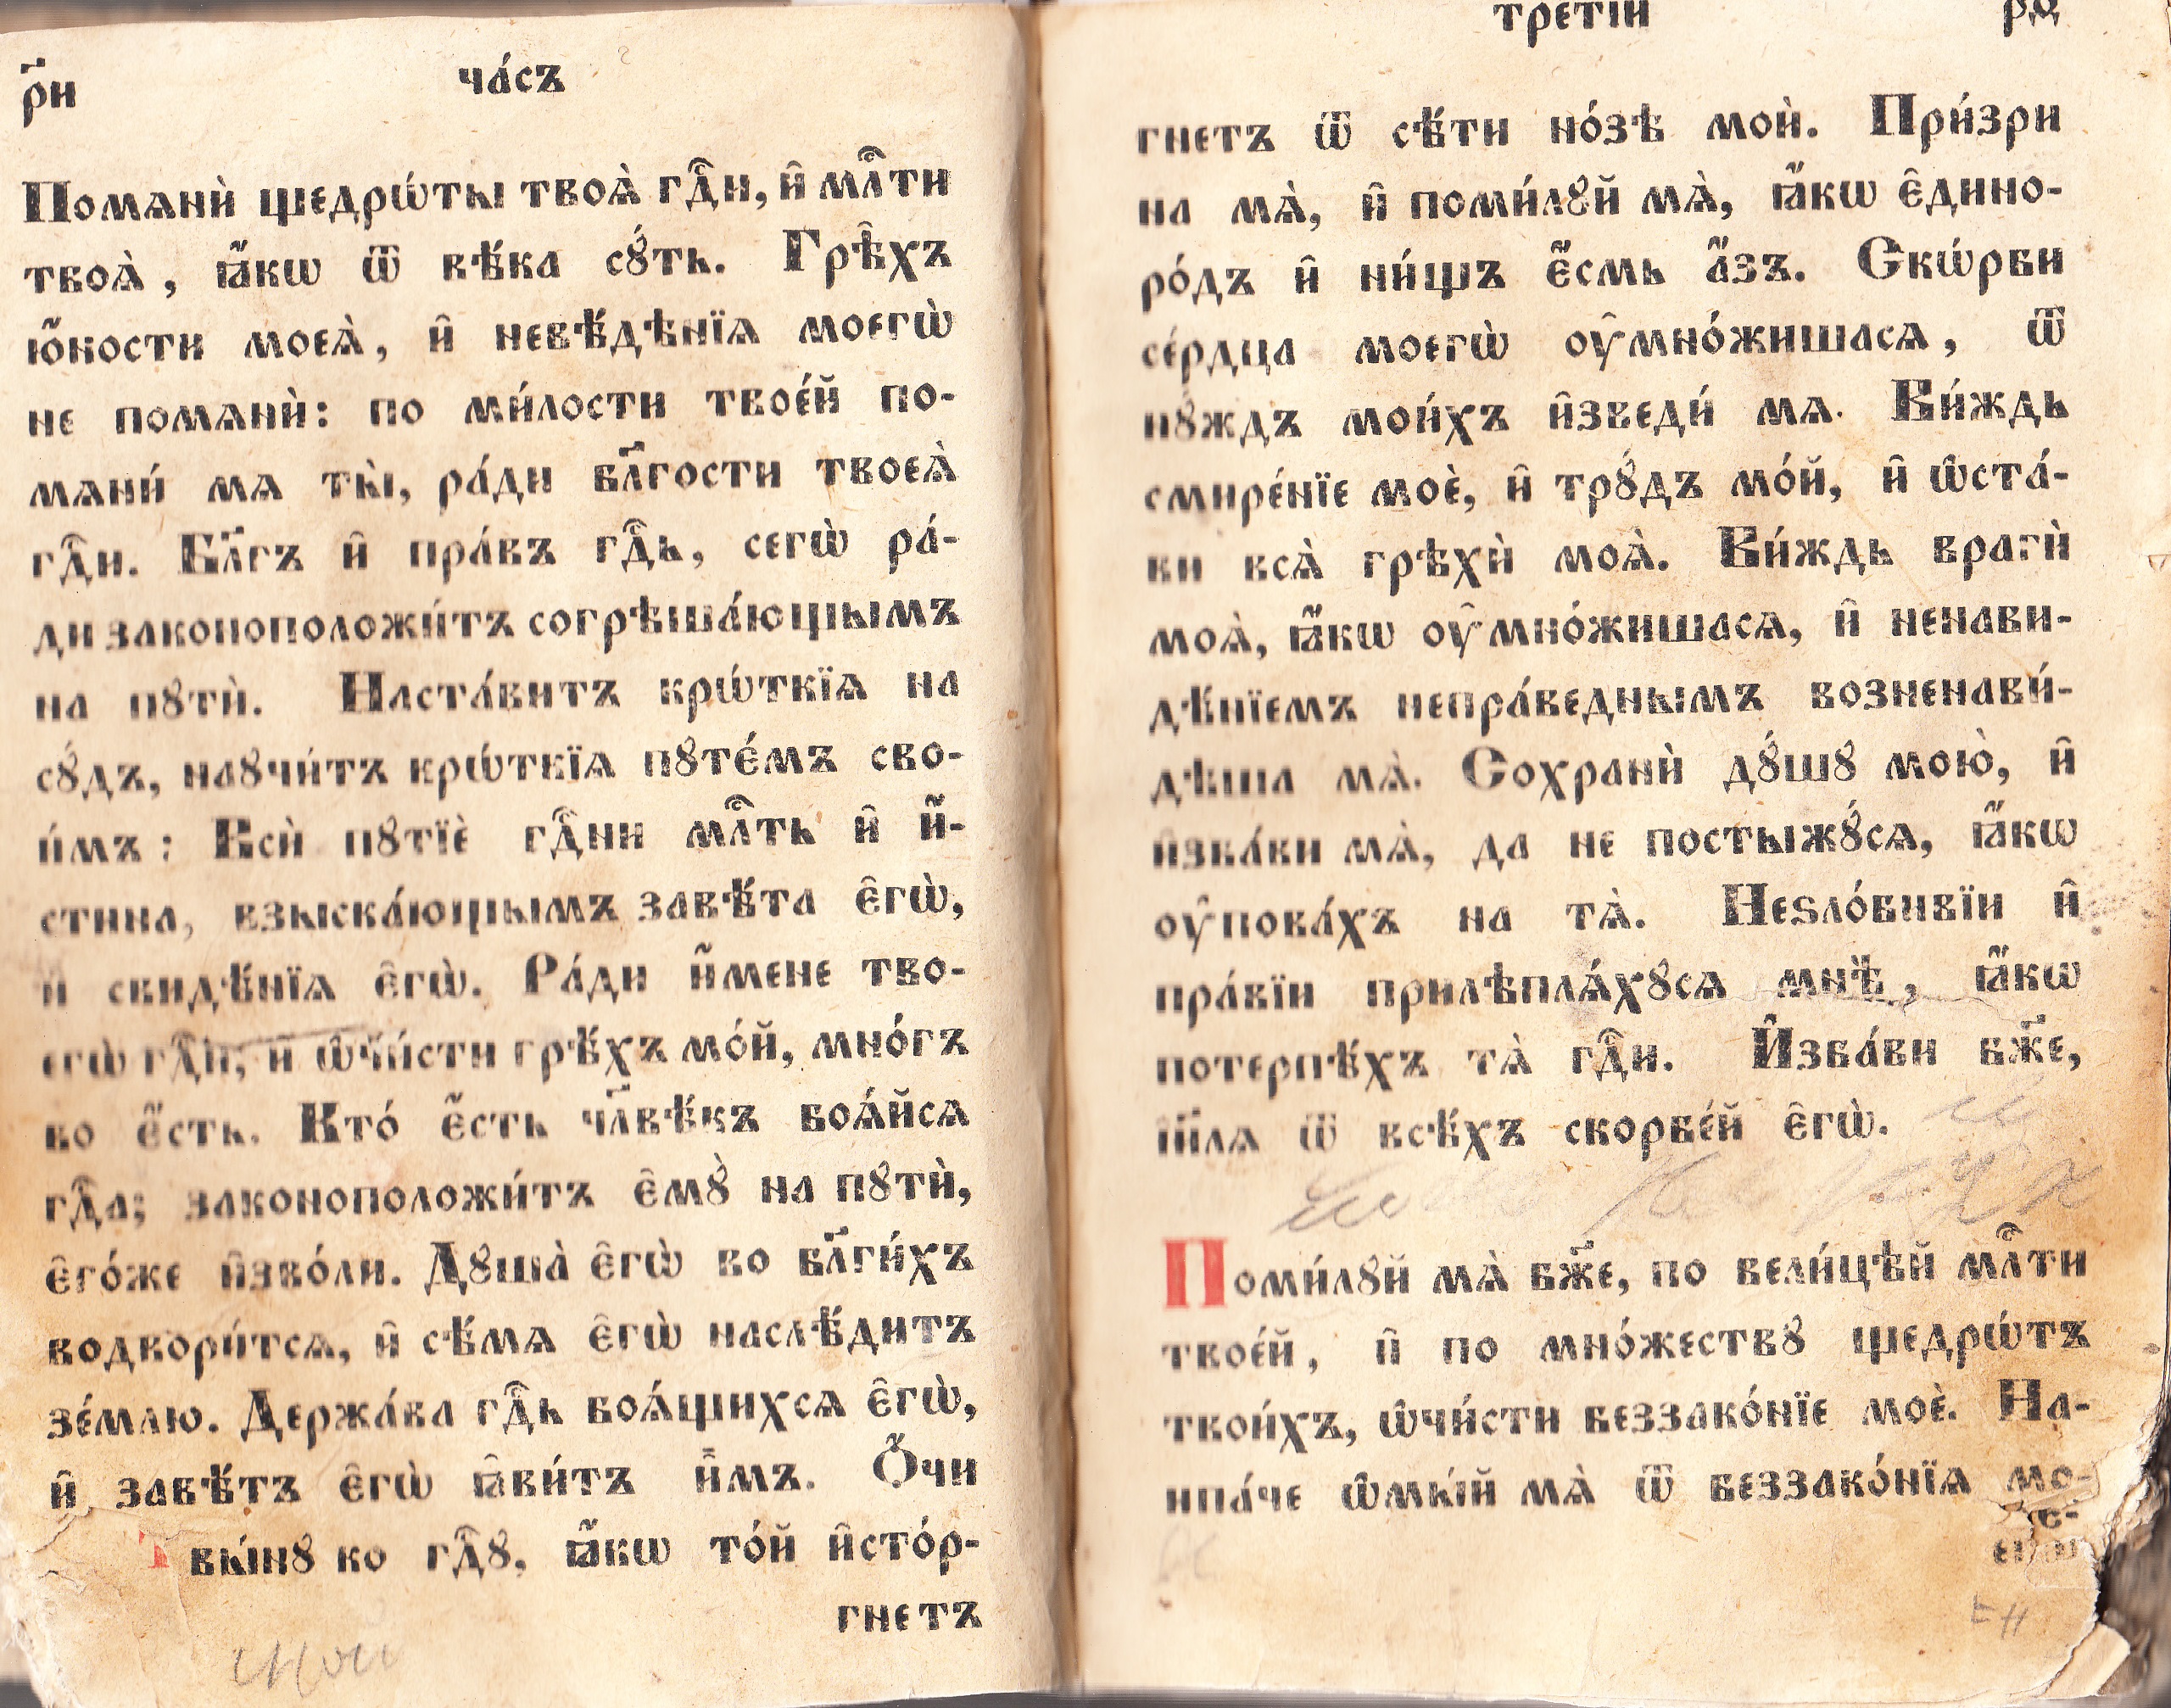 р҃и
ча́съ
Помѧнѝ щедрѡ́ты твоѧ̀ гдⷭ҇и, и҆ млⷭ҇ти
твоѧ̀, ꙗ҆́кѡ ѿ вѣ́ка сꙋ́ть. Грѣ̑хъ
ю҆́ности моеѧ̀, и҆ невѣ́дѣнїѧ моегѡ̀
не помѧнѝ: по ми́лости твое́й по-
мѧни́ мѧ ты̀, ра́ди бл҃гости твоеѧ̀
гдⷭ҇и. Бл҃гъ и҆ пра́въ гдⷭ҇ь, сегѡ̀ ра́-
ди законоположи́тъ согрѣша́ющымъ
на пꙋтѝ. Наста́витъ крѡ́ткїѧ на
сꙋ́дъ, наꙋчи́тъ крѡ́ткїѧ пꙋте́мъ сво-
и́мъ: Всѝ пꙋтїѐ гдⷭ҇ни млⷭ҇ть и҆ и҆́-
стина, взыска́ющымъ завѣ́та є҆гѡ̀,
и҆ свидѣ́нїѧ є҆гѡ̀. Ра́ди и҆́мене тво-
егѡ̀ гдⷭ҇и, и҆ ѡ҆чи́сти грѣ́хъ мо́й, мно́гъ
бо є҆́сть. Кто́ є҆́сть чл҃вѣ́къ боѧ́йсѧ
гдⷭ҇а; законоположи́тъ є҆мꙋ̀ на пꙋтѝ,
є҆го́же и҆зво́ли. Дꙋша̀ є҆гѡ̀ во бл҃ги́хъ
водвори́тсѧ, и҆ сѣ́мѧ є҆гѡ̀ наслѣ́дитъ
зе́млю. Держа́ва гдⷭ҇ь боѧ́щихсѧ є҆гѡ̀,
и҆ завѣ́тъ є҆гѡ̀ ꙗ҆ви́тъ и҆̀мъ. Ѻ҆́чи
вы́нꙋ ко гдⷭ҇ꙋ, ꙗ҆́кѡ то́й и҆сто́р-
гнетъ
третїи
гнетъ ѿ сѣ́ти но́зѣ моѝ. При́зри
на мѧ̀, и҆ поми́лꙋй мѧ̀, ꙗ҆́кѡ є҆дино-
ро́дъ и҆ ни́щъ є҆́смь а҆́зъ. Скѡ́рби
се́рдца моегѡ̀ ᲂу҆мно́жишасѧ, ѿ
нꙋ́ждъ мои́хъ и҆зведи́ мѧ. Ви́ждь
смире́нїе моѐ, и҆ трꙋ́дъ мо́й, и҆ ѡ҆ста́-
ви всѧ̀ грѣхѝ моѧ̀. Ви́ждь врагѝ
моѧ̀, ꙗ҆́кѡ ᲂу҆мно́жишасѧ, и҆ ненави-
дѣ́нїемъ непра́веднымъ возненави́-
дѣша мѧ̀. Сохранѝ дꙋ́шꙋ мою̀, и҆
и҆зба́ви мѧ̀, да не постыжꙋ́сѧ, ꙗ҆́кѡ
ᲂу҆пова́хъ на тѧ̀. Неѕло́бивїи и҆
пра́вїи прилѣплѧ́хꙋсѧ мнѣ̀, ꙗ҆́кѡ
потерпѣ́хъ тѧ̀ гдⷭ҇и. И҆зба́ви бж҃е,
і҆и҃лѧ ѿ всѣ́хъ скорбе́й є҆гѡ̀.
Поми́лꙋй мѧ̀ бж҃е, по вели́цѣй млⷭ҇ти
твое́й, и҆ по мно́жествꙋ щедрѡ́тъ
твои́хъ, ѡ҆чи́сти беззако́нїе моѐ. На-
ипа́че ѡ҆мы́й мѧ̀ ѿ беззако́нїѧ мо-